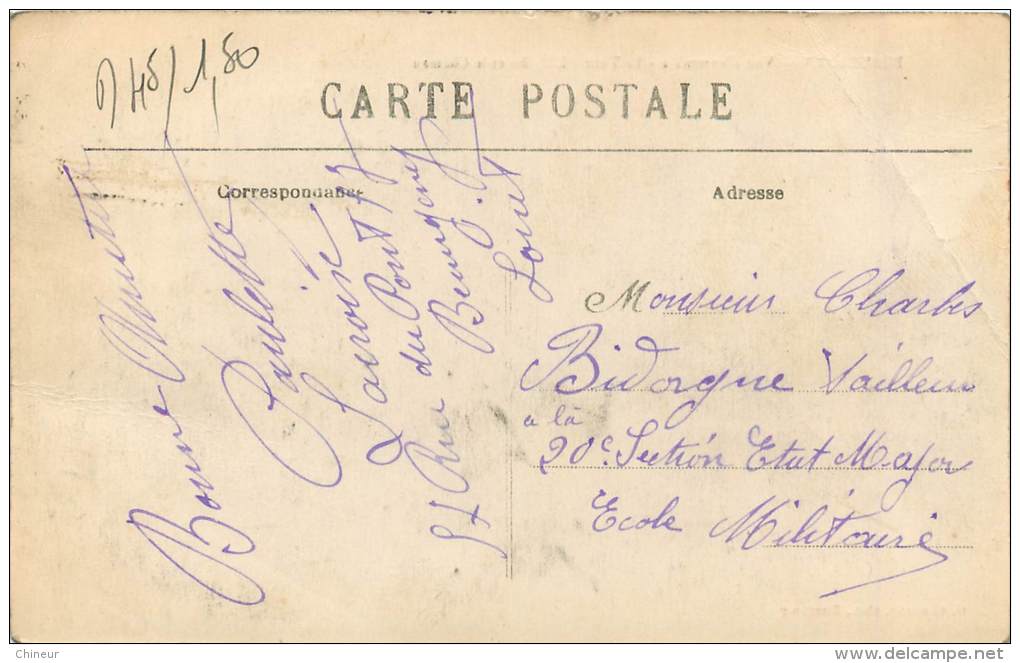 45/1,50
CARTE POSTALE
Correspondance
Adresse
Bonne Minette
Paulette
51 Rue du Pont
Beaugency
Loiret
Monsieur Charles
Bidorgne Tailleur
à la
20e Section Etat Major
Ecole Militaire
Chineur
www.delcampe.net